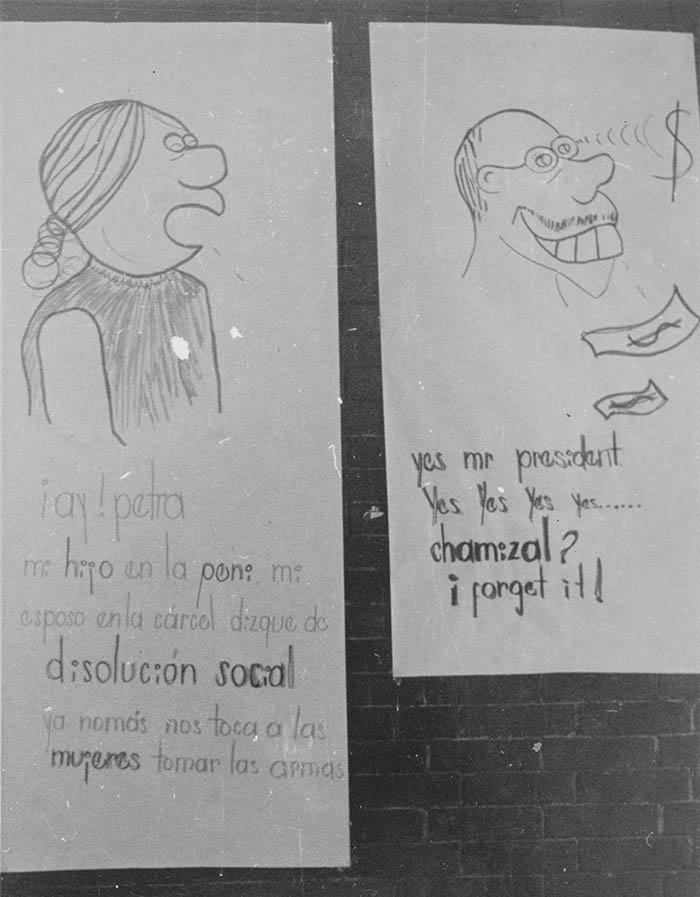 ¡ay! petra
mi hijo en la poni, mi
esposo en la cárcel dizque de
disolución social
ya nomás nos toca a las
mujeres tomar las armas
$
yes mr president
yes yes yes yes......
chamizal?
i forget it!